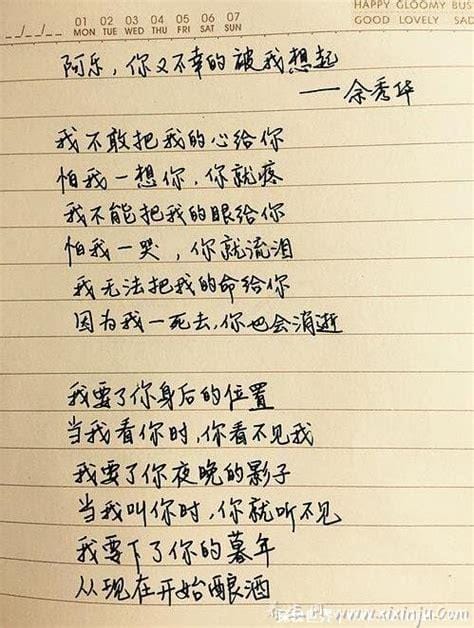 HAPPY GLOOMY BUS
01 02 03 04 05 06 07
MON TUE WED THU FRI SAT SUN
GOOD LOVELY SAD
阿乐，你又不幸的被我想起
——余秀华
我不敢把我的心给你
怕我一想你，你就疼
我不能把我的眼给你
怕我一哭，你就流泪
我无法把我的命给你
因为我一死去，你也会消逝
我要了你身后的位置
当我看你时，你看不见我
我要了你夜晚的影子
当我叫你时，你就听不见
我要下了你的暮年
从现在开始酿酒
www.xixinju.com